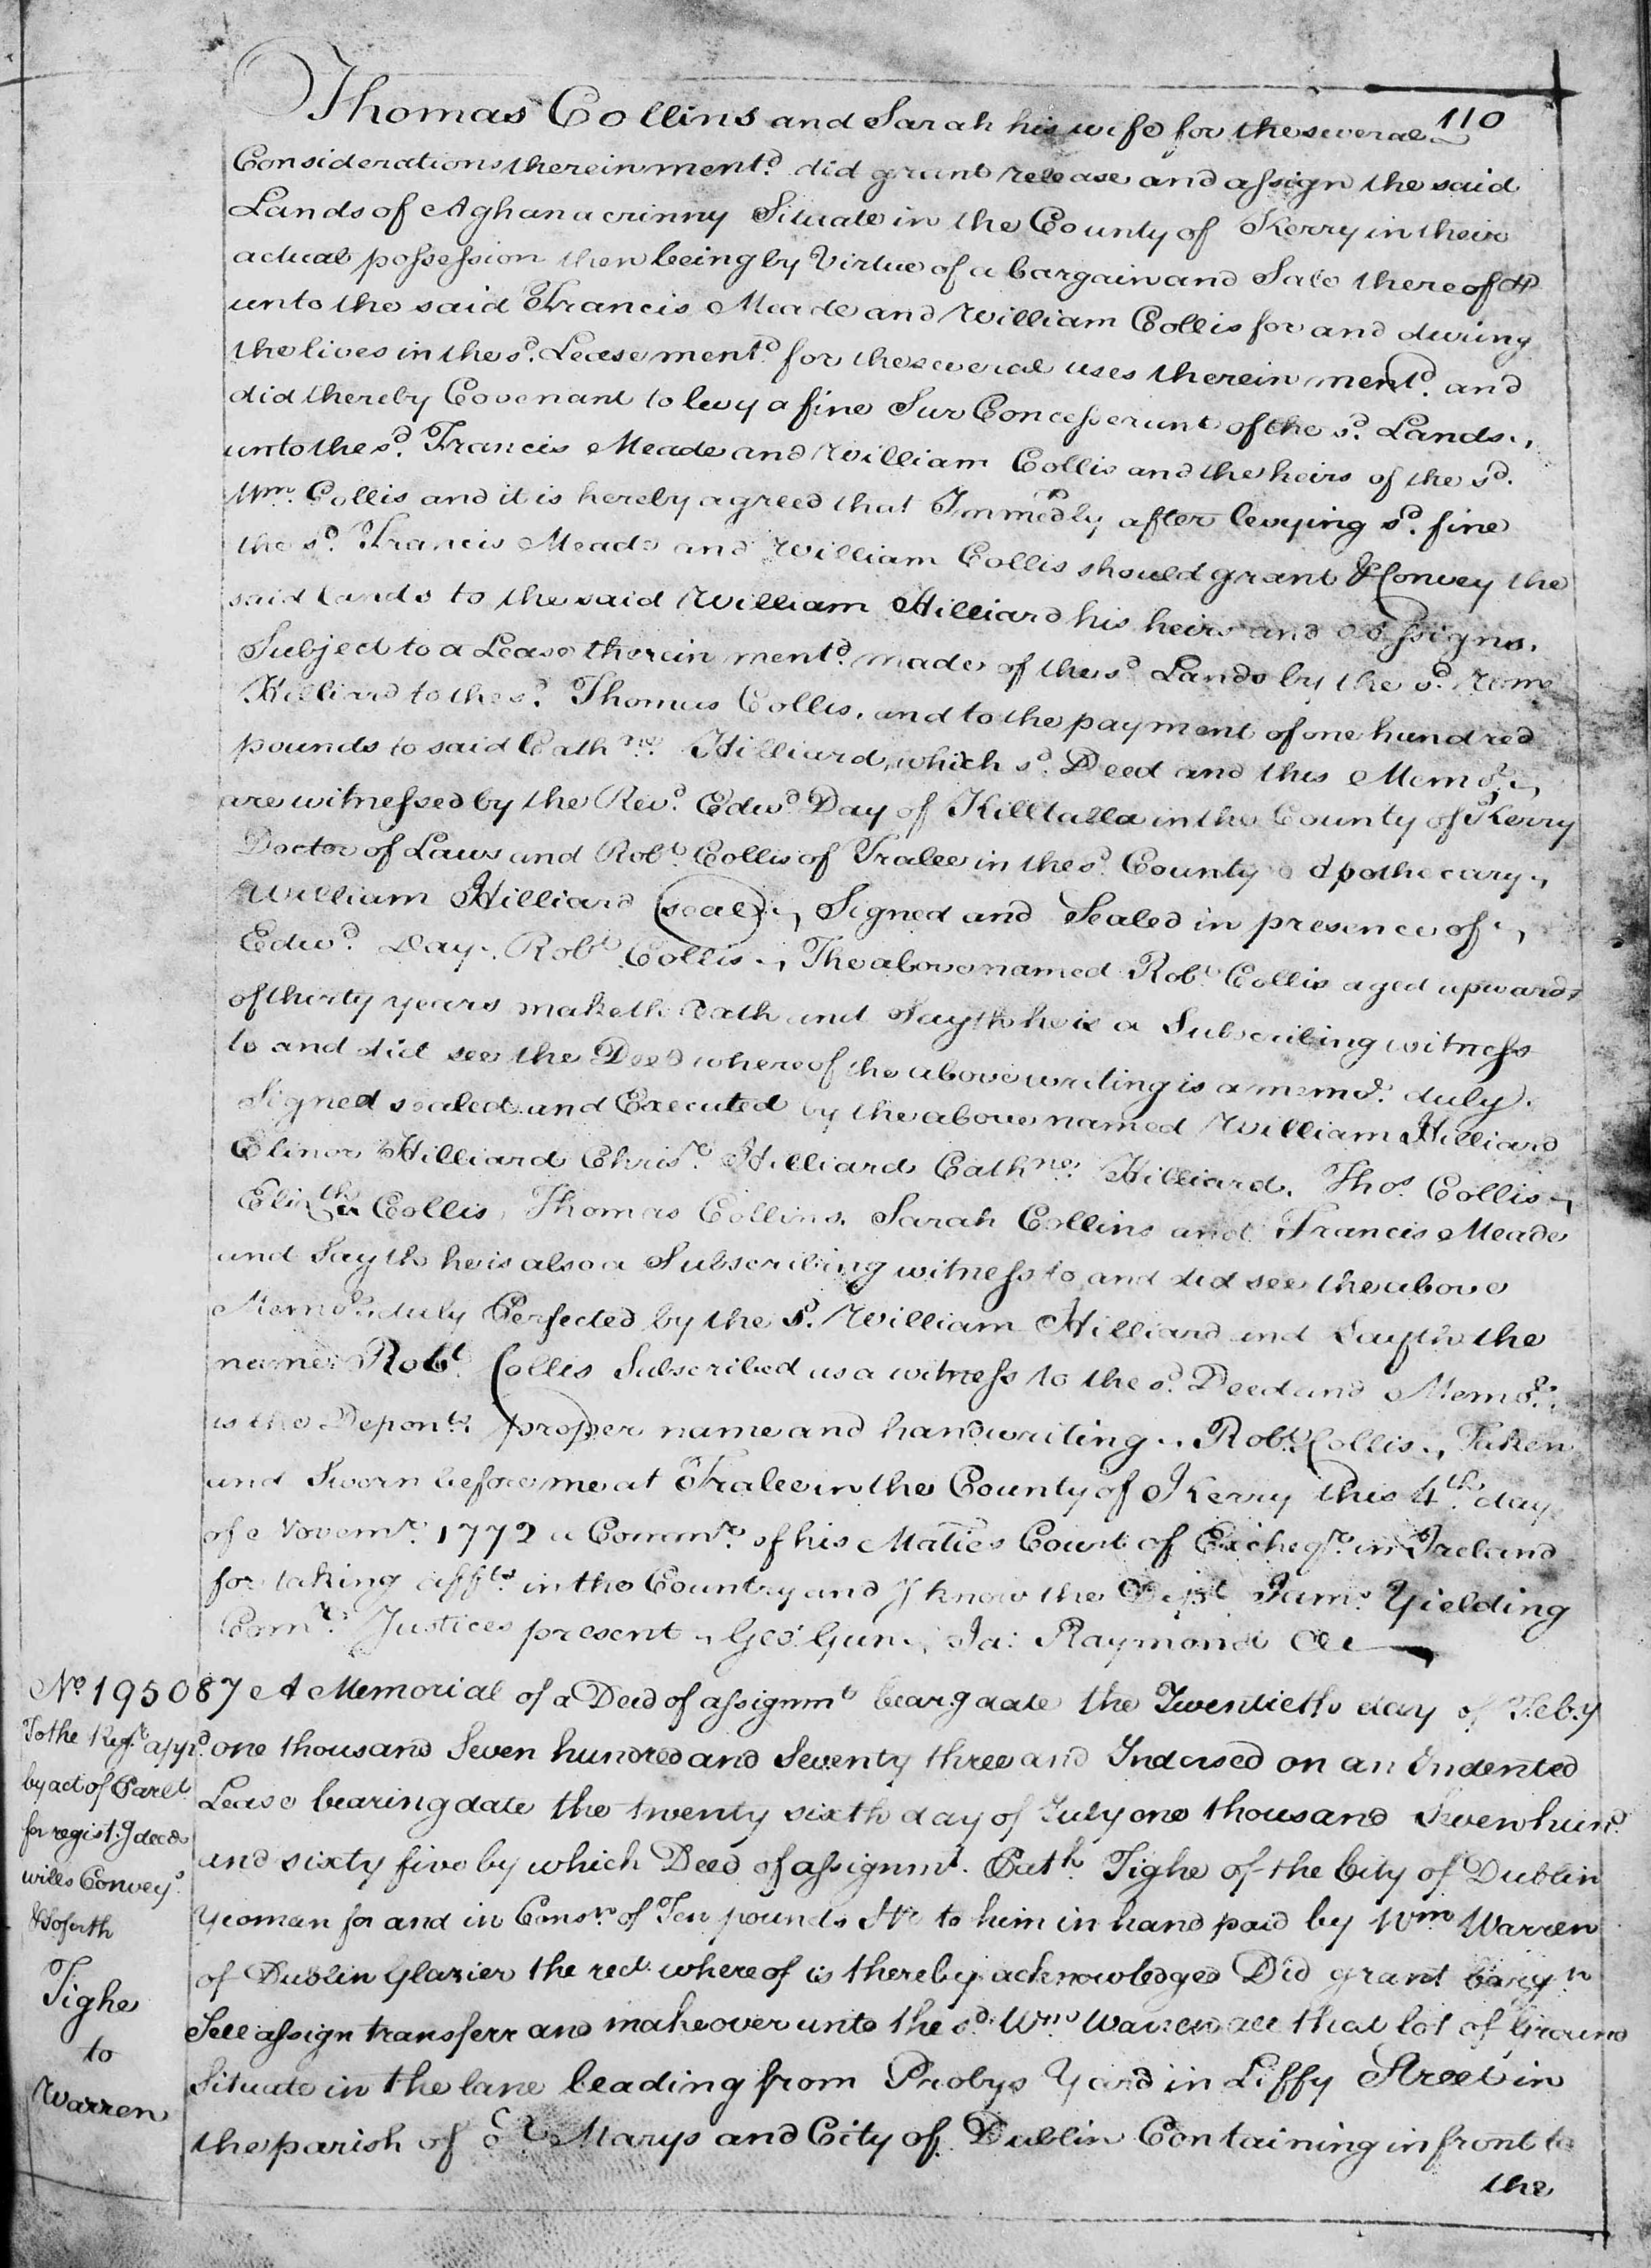 110
Thomas Collins and Sarah his wife for the several
Considerations therein ment.d did grant release and assign the said
Lands of Aghanacrinny Situate in the County of Kerry in their
actual possession then being by Virtue of a bargain and Sale thereof
unto the said Francis Meade and William Collis for and during
the lives in the s.d Lease ment.d for the several uses therein ment.d and
did thereby Covenant to levy a fine Sur Concesserunt of the s.d Lands
unto the s.d Francis Meade and William Collis and the heirs of the s.d
Wm. Collis and it is hereby agreed that Immedly after levying s.d fine
the s.d Francis Meade and William Collis should grant & Convey the
said Lands to the said William Hilliard his heirs and assigns.
Subject to a Lease therein ment.d made of the s.d Lands by the s.d Wm
Hilliard to the s.d Thomas Collis. and to the payment of one hundred
pounds to said Cath.ne Hilliard, which s.d Deed and this Mem.l
are witnessed by the Rev.d Edw.d Day of Killtalla in the County of Kerry
Doctor of Laws and Rob.t Collis of Tralee in the s.d County Apothecary
William Hilliard (seal) Signed and Sealed in presence of
Edw.d Day. Rob.t Collis The above named Rob.t Collis aged upwards
of thirty years maketh Oath and Sayth he is a Subscribing witness
to and did see the Deed whereof the above writing is a mem.l duly
Signed sealed and Executed by the above named William Hilliard
Elinor Hilliard Chris.r Hilliard Cath.ne Hilliard. Tho.s Collis
Eliz.th Collis, Thomas Collins. Sarah Collins and Francis Meade
and Sayth he is also a Subscribing witness to and did see the above
Mem.l duly Perfected by the s.d William Hilliard and Sayth the
name Rob.t Collis Subscribed as a witness to the s.d Deed and Mem.l
is the Depon.ts proper name and handwriting. Rob.t Collis. Taken
and Sworn before me at Tralee in the County of Kerry this 4.th day
of Novem.r 1772 a Comm.r of his Maties Court of Excheq.r in Ireland
for taking aff.ts in the Country and I know the Dep.t Jam.s Yielding
Com.r Justices present Geo. Gun. Ja: Raymond &c
No. 195087 A Memorial of a Deed of assignm.t bearg date the Twentieth day of Feb.y
To the Reg.r app.d
by act of Parl.t
for regist.g deeds
wills Convey.s
& so forth
Tighe
to
Warren
one thousand Seven hundred and Seventy three and Indorsed on an Indented
Lease bearing date the twenty sixth day of July one thousand Seven hund.d
and sixty five by which Deed of assignm.t Pat.k Tighe of the City of Dublin
Yeoman for and in Cons.n of Ten pounds Str to him in hand paid by Wm Warren
of Dublin Glazier the rec.t whereof is thereby acknowledged Did grant barg.n
Sell assign transferr and make over unto the s.d Wm Warren all that lot of Ground
Situate in the lane leading from Probys Yard in Liffy Street in
the parish of St Marys and City of Dublin Containing in front to
the